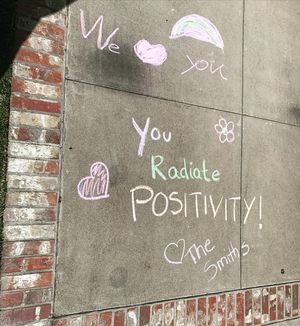 We
you
You
Radiate
POSITIVITY!
The
Smiths